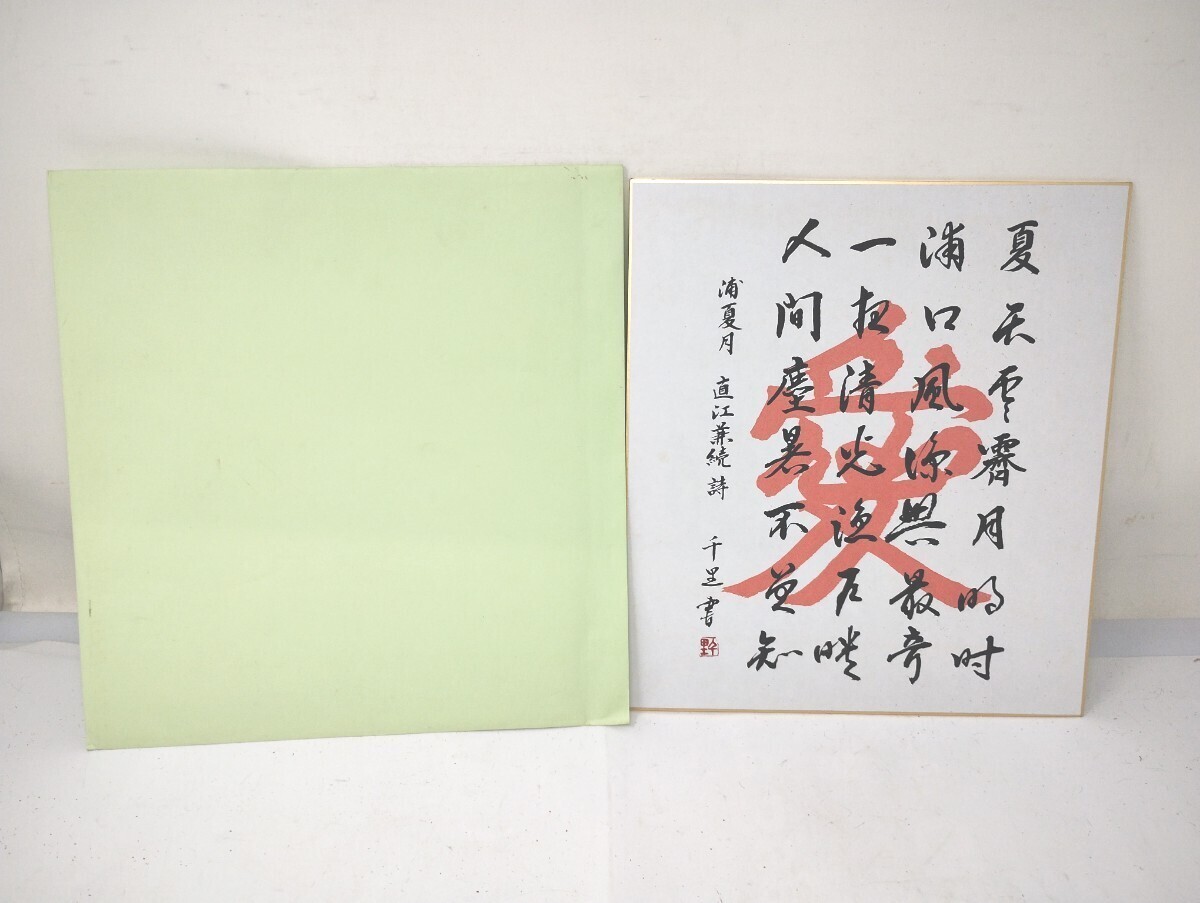 夏天雲霽月明时
浦口風涼興最奇
一清光漁
人間塵暑不曽知
浦夏月　直江兼続詩　千里書
千里